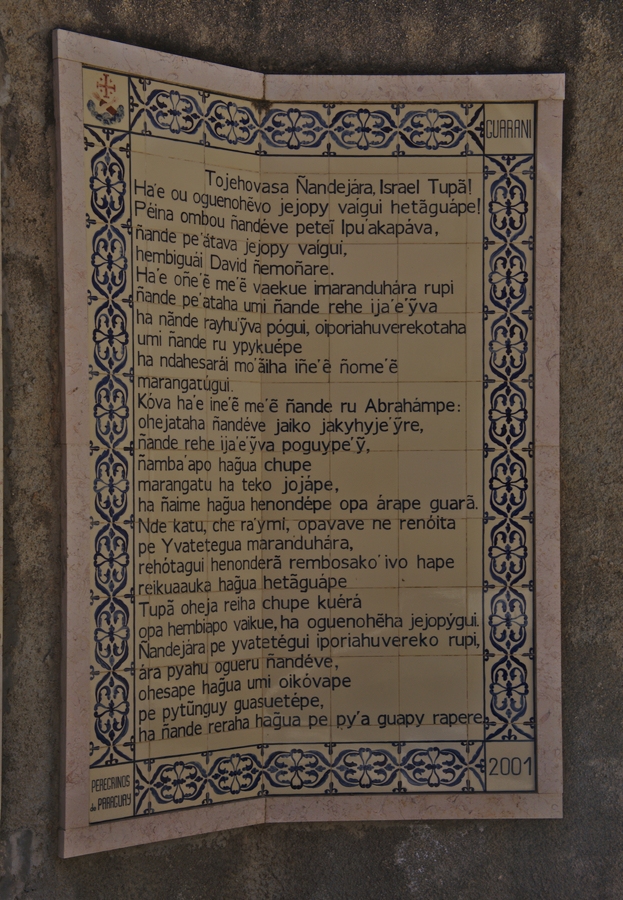 GUARANI
Tojehovasa Ñandejára, Israel Tupã!
Ha'e ou oguenohẽvo jejopy vaígui hetãguápe!
Péina ombou ñandéve peteĩ Ipu'akapáva,
ñande pe'átava jejopy vaígui,
hembiguái David ñemoñare.
Ha'e oñe'ẽ me'ẽ vaekue imaranduhára rupi
ñande pe'ataha umi ñande rehe ija'e'ỹva
ha nãnde rayhu'ỹva pógui, oiporiahuverekotaha
umi ñande ru ypykuépe
ha ndahesarái mo'ãiha iñe'ẽ ñome'ẽ
marangatúgui.
Kóva ha'e ine'ẽ me'ẽ ñande ru Abrahámpe:
ohejataha ñandéve jaiko jakyhyje'ỹre,
ñande rehe ija'e'ỹva poguype'ỹ,
ñamba'apo hag̃ua chupe
marangatu ha teko jojápe,
ha ñaime hag̃ua henondépe opa árape guarã.
Nde katu, che ra'ymi, opavave ne renóita
pe Yvatetegua maranduhára,
rehótagui henonderã rembosako'ivo hape
reikuaauka hag̃ua hetãguápe
Tupã oheja reiha chupe kuérá
opa hembiapo vaikue, ha oguenohẽha jejopýgui.
Ñandejára pe yvatetégui iporiahuvereko rupi,
ára pyahu ogueru ñandéve,
ohesape hag̃ua umi oikóvape
pe pytũnguy guasuetépe,
ha ñande reraha hag̃ua pe py'a guapy rapere
PEREGRINOS
de PARAGUAY
2001